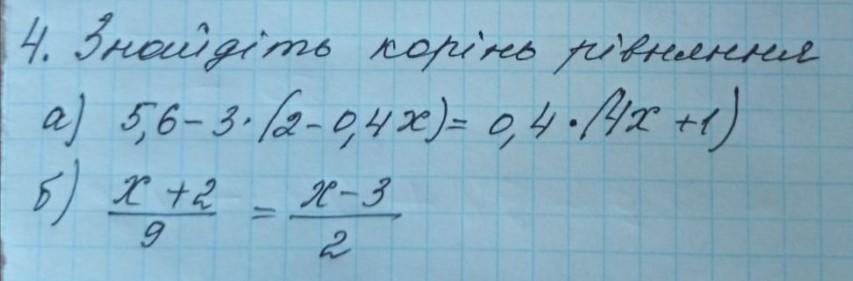 4. Знайдіть корінь рівняння
а) 5,6 - 3·(2 - 0,4x) = 0,4·(4x + 1)
б) (x + 2)/9 = (x - 3)/2